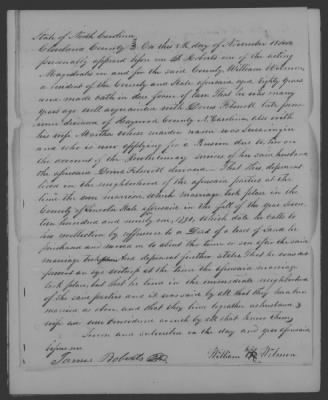 State of North Carolina
Cleaveland County On the 8th day of November 1844
personally appeard before me J. Roberts one of the acting
Magistrates in and for the said County William Wilson
a resident of the County and State aforesaid aged Eighty years
and made oath in due form of law That he was many
years ago well acquainted with
deceased of Haywood County N. Carolina also with
his wife Martha whose maiden name was
and who is now applying for a Pension due to her on
the account of the Revolutionary services of her said husband
the aforesaid deceased That this deponent
lived in the neighborhood of the aforesaid parties at the
time the same marriage took place in the
County of Lincoln State aforesaid in the fall of the year Seven
teen hundred and ninety one, 1791, Which date he calls to
his recollection by reference to a Deed of a tract of Land he
purchased and on to about the time or soon after the said
marriage took place And deponent further states That he was not
present an eye witness at the time the aforesaid marriage
took place, but that he lived in the immediate neighborhood
of the said parties and it was said by all that they had been
married as above and that they lived together as husband &
wife and were considered as such by all that knew them
Sworn and subscribed on the day and year aforesaid
before me
James Roberts William Wilson